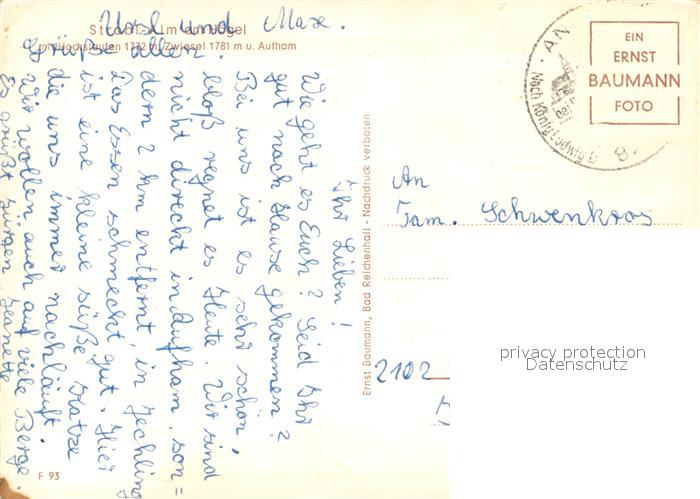 Stroblt. Alm am Högl
mit Hochstaufen 1772 m, Zwiesel 1781 m u. Aufham
Ihr Lieben!
Wie geht es Euch? Seid Ihr
gut nach Hause gekommen?
Bei uns ist es sehr schön,
bloß regnet es Heute. Wir sind
nicht direkt in Aufham, son=
dern 2 km entfernt, in Jechling
Das Essen schmeckt gut. Hier
ist eine kleine süße Katze
die uns immer nachläuft.
Wir wollen auch auf viele Berge.
Es grüßt Jürgen Jeanette
Grüße allen.
Ursl und Maxe.
Ernst Baumann, Bad Reichenhall - Nachdruck verboten
EIN
ERNST
BAUMANN
FOTO
AN
Nach König Ludwig
bei
8
An
Fam. Schwenkros
2102
privacy protection
Datenschutz
F 93